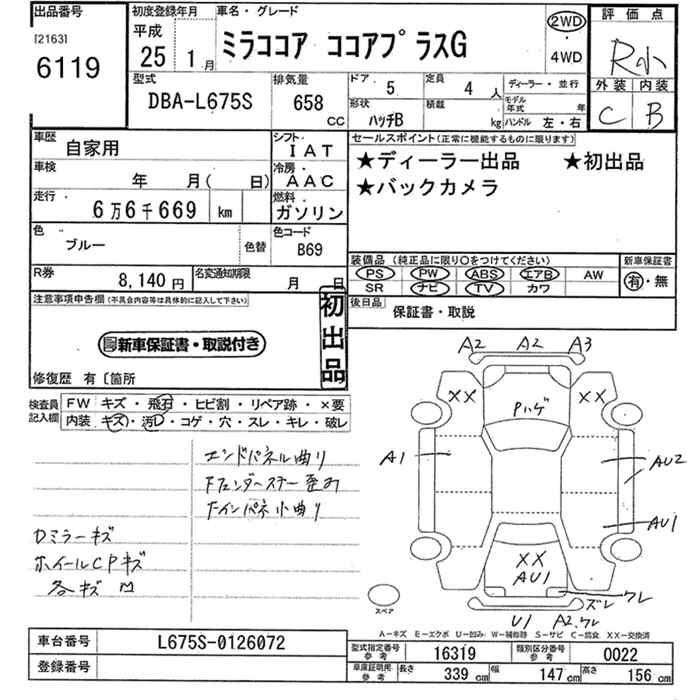 出品番号
[2163]
6119
初度登録年月
平成
25 1月
車名・グレード
ミラココア ココアプラスG
2WD
・
4WD
評価点
R小
外装 内装
C B
型式
DBA-L675S
排気量
658
CC
ドア 5
定員 4人
ディーラー・並行
形状 ハッチB
積載 kg
モデル年式 年
ハンドル 左・右
車歴
自家用
シフト
IAT
車検
年 月( 日)
冷房
AAC
走行
6万6千669 km
燃料
ガソリン
色
ブルー
色替
色コード
B69
R券
8,140円
名変通知期限
月 日
セールスポイント(正常に機能するものに限ります)
★ディーラー出品 ★初出品
★バックカメラ
装備品(純正品に限り○をつけてください)
PS PW ABS エアB AW
SR ナビ TV カワ
新車保証書
有・無
後日品
保証書・取説
注意事項申告欄(不具合内容等は具体的に記入して下さい)
新車保証書・取説付き
初出品
修復歴 有〔箇所
検査員記入欄
FW キズ・飛石・ヒビ割・リペア跡・×要
内装 キズ・汚レ・コゲ・穴・スレ・キレ・破レ
エンドパネル曲り
Fフェンダーステー歪み
Fインパネ小曲り
Dミラーキズ
ホイールCPキズ
各キズ凹
A2 A2 A3
XX XX
Pハゲ
A1
AU2
AU1
XX
AU1
クレ
ズレ
U1 A2.クレ
スペア
A-キズ E-エクボ U-凹み W-補修跡 S-サビ C-腐食 XX-交換済
車台番号
L675S-0126072
登録番号
型式指定番号
参考
16319
類別区分番号
参考
0022
車庫証明用
参考
長さ 339cm
幅 147cm
高さ 156cm